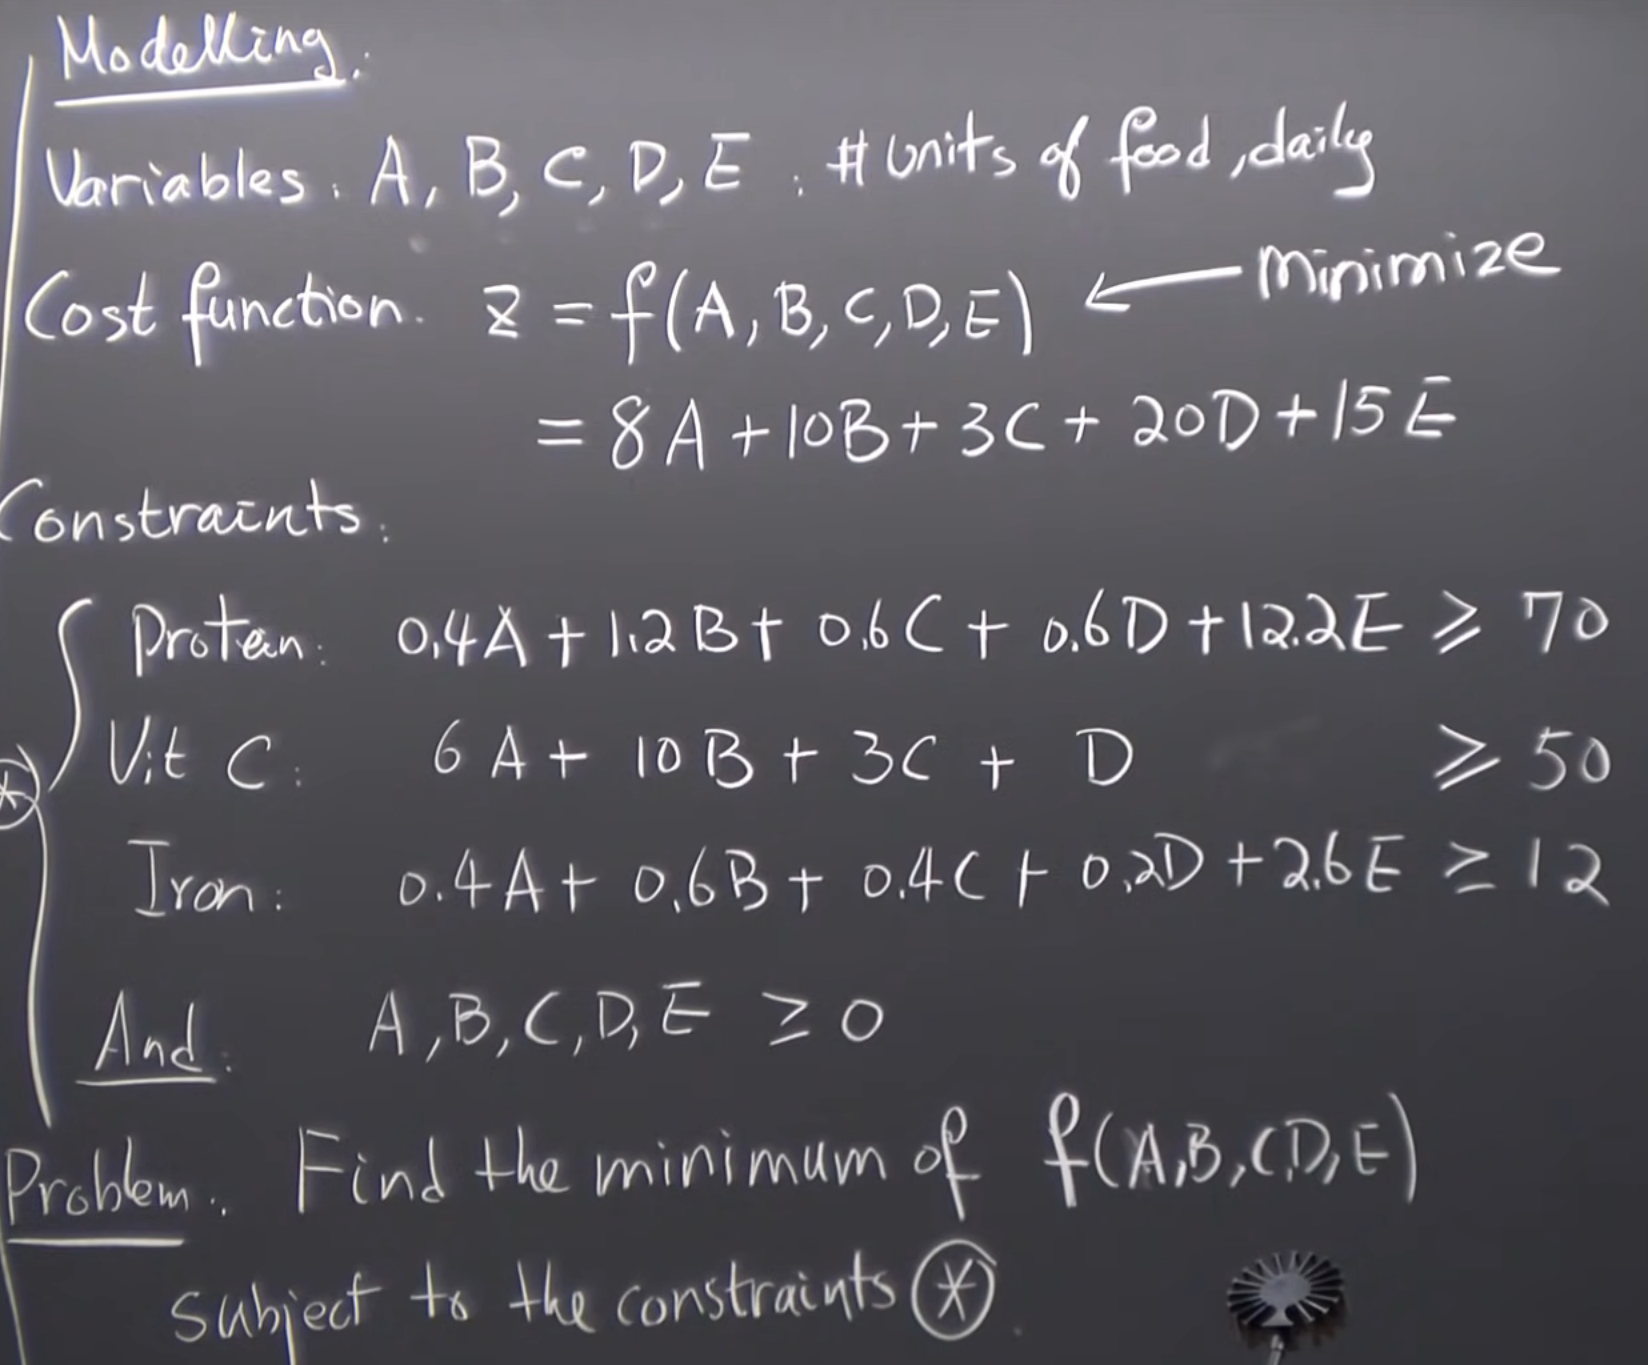 Modelling:
Variables: A, B, C, D, E : # units of food, daily
Cost function. z = f(A, B, C, D, E) ← minimize
= 8A + 10B + 3C + 20D + 15E
Constraints:
Protein: 0.4A + 1.2B + 0.6C + 0.6D + 12.2E ⩾ 70
Vit C: 6A + 10B + 3C + D ⩾ 50
Iron: 0.4A + 0.6B + 0.4C + 0.2D + 2.6E ≥ 12
And: A, B, C, D, E ≥ 0
Problem: Find the minimum of f(A,B,C,D,E)
subject to the constraints ⊛.